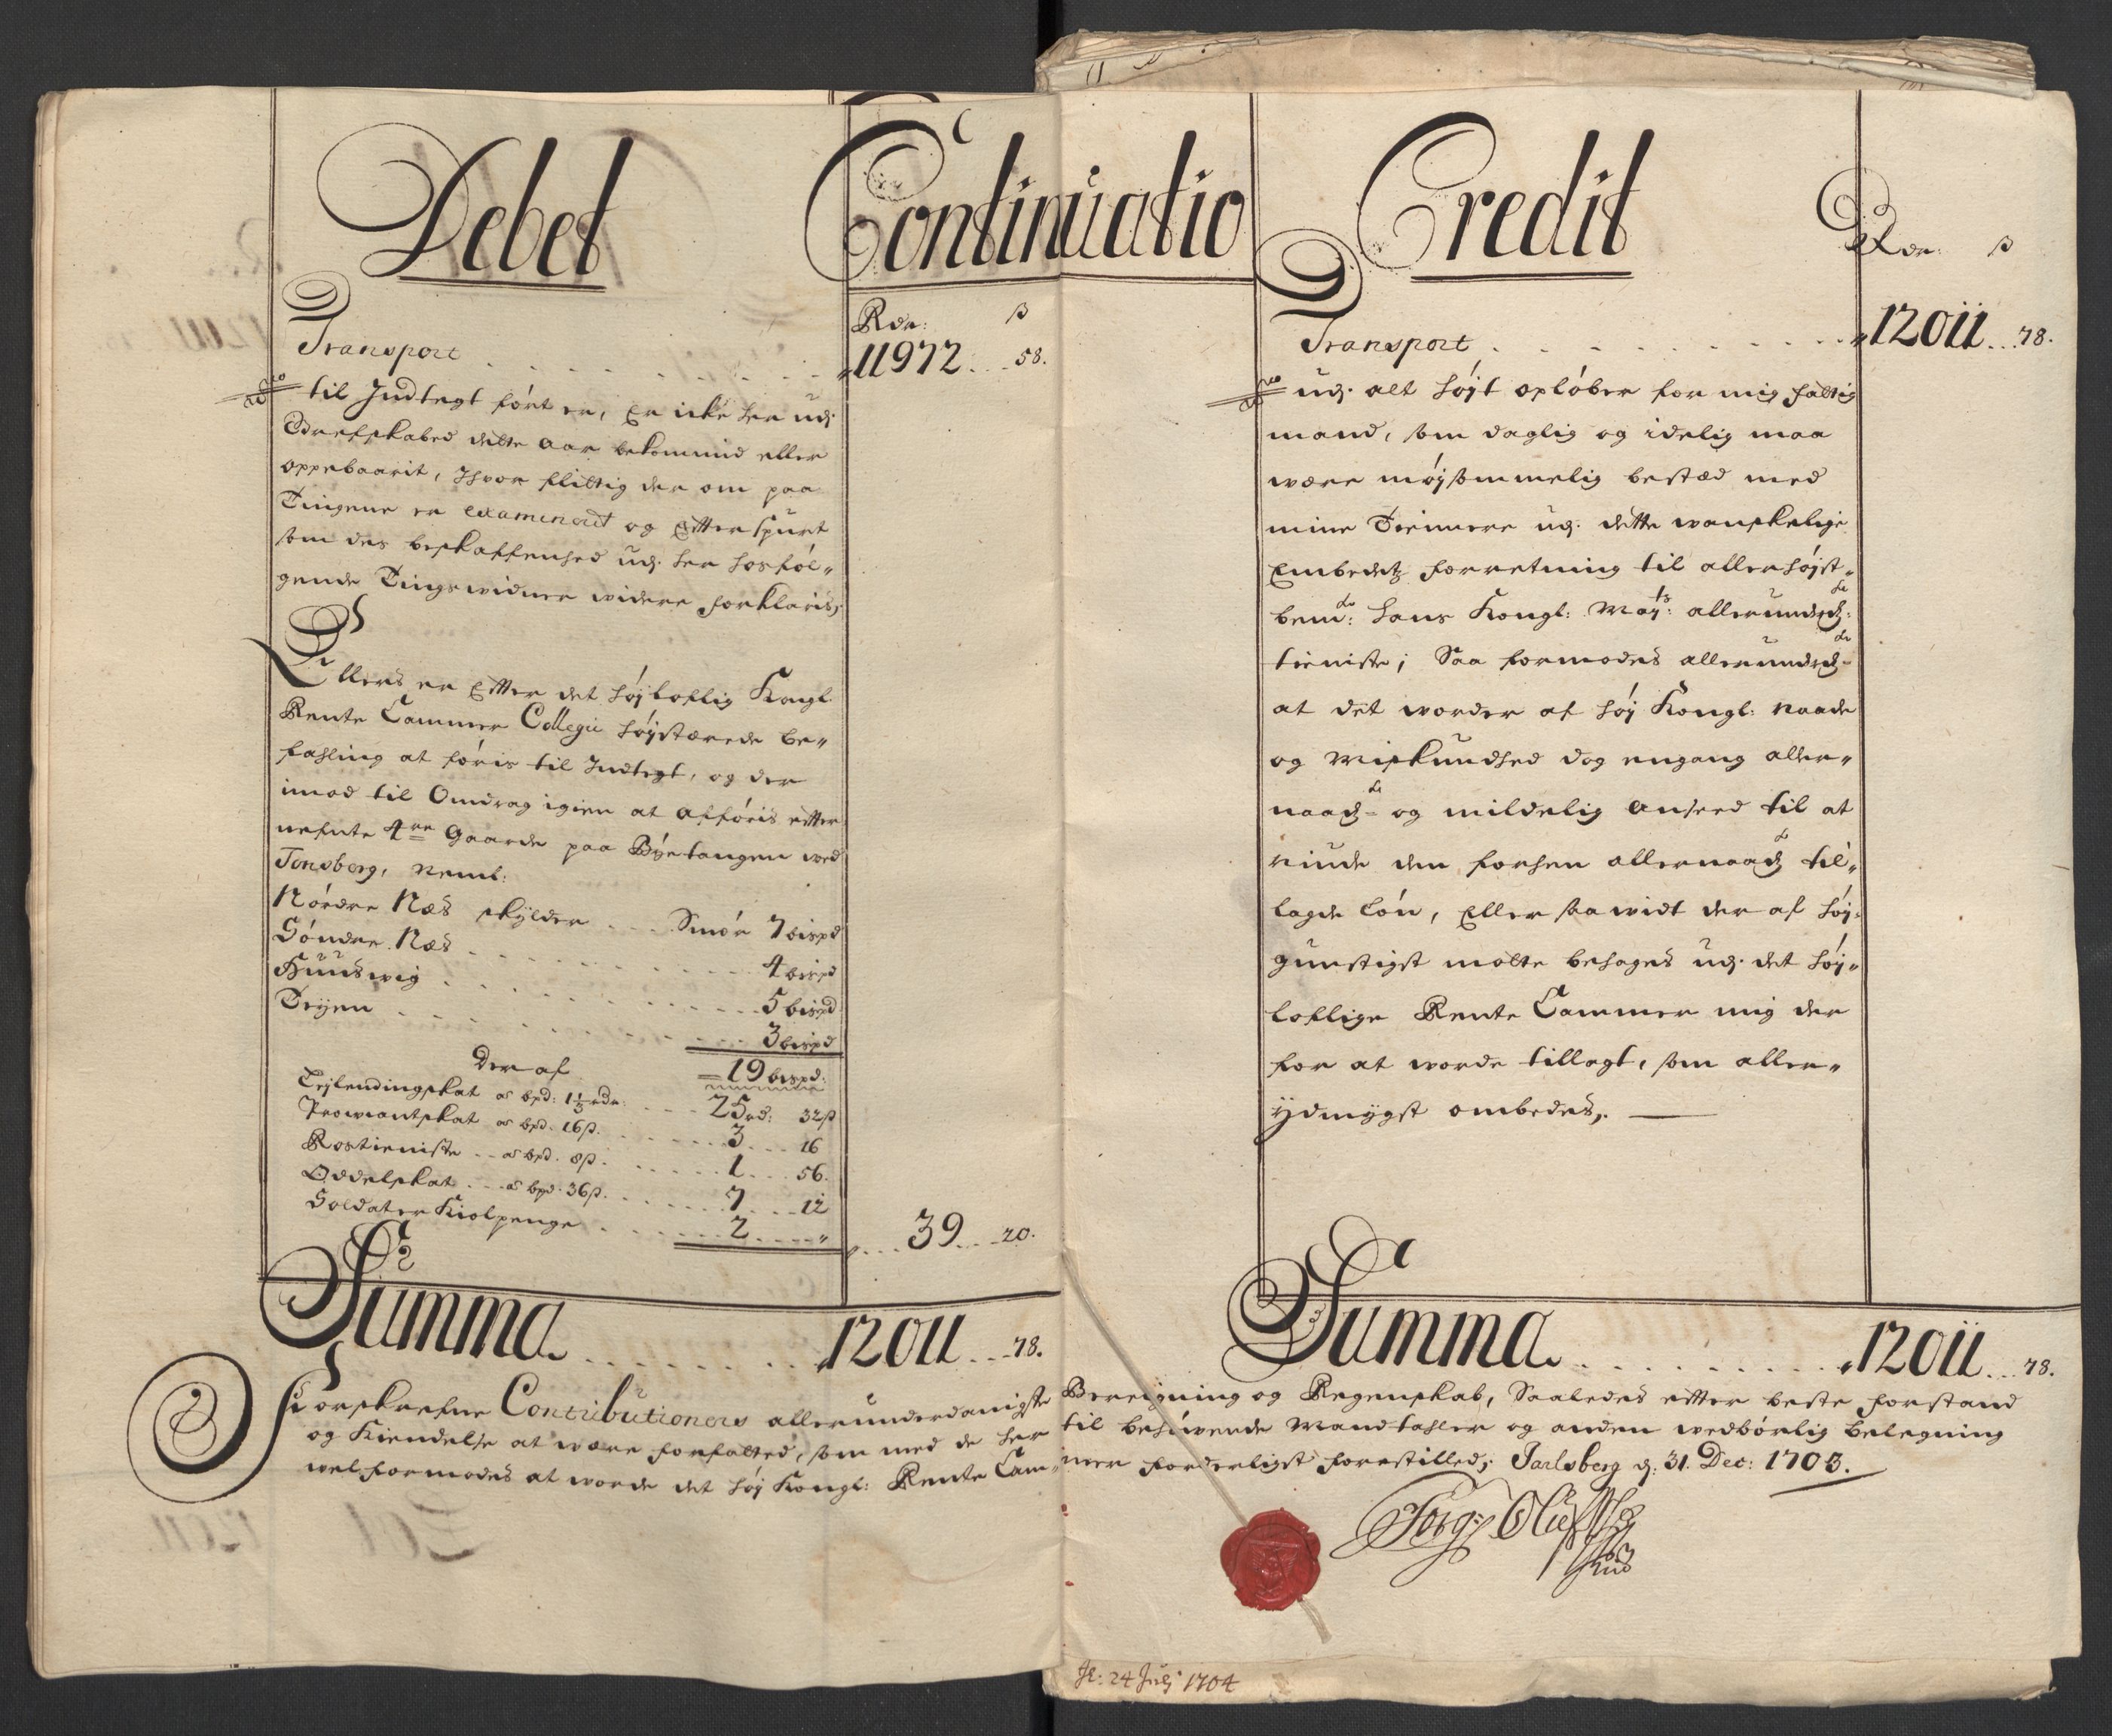 Debet Continuatio Credit
Rdr: ß
Transport . . . . . . . . 11972 . . 58.
til Indtegt ført er, Er icke her udj
Grefskabed dette Aar bekommid eller
oppebaarit, Hvor flittig der om paa
Tingene er examinerit og Efterspurt
som des beskaffenhed udj her hosføl„
gende Tingswidner widere forklaris,
Ellers er Efter det høyloflig Kongl.
Rente Cammer Collegii høystærede be„
fahling at føris til Indtegt, og der
imod til Omdrag igien at afføris efter
nefnte 4re Gaarde paa Byetangen wed
Tonsberg, Neml:
Nordre Næs skylder . . . Smør 7 bispd
Søndre Næs . . . . . . 4 bispd
Huuswig . . . . . . 5 bispd
Teyen . . . . . . 3 bispd
Der af 19 bispd:
Lejlendingskat a bpd: 1⅓ rdr: . . . 25 rd: 32 ß
Prowiantskat a bpd. 16 ß. . . . 3 . . . 16
Rostieniste . . a bpd. 8 ß. . . . 1 . . . 56.
Oddelskat . . . a bpd. 36 ß. . . . 7 . . . 12
Soldater Kiolpenge . . . . . . 2 . . . „
39 . . 20.
Summa . . . . . . . . 12011 . . 78.
Rdr ß
Transport . . . . . . . . . 12011 . . 78.
udj. alt høyt opløber for mig fattig
mand, som daglig og idelig maa
være møysommelig bestæd med
mine Tiennere udj. dette wanskelige
Embeditz forretning til allerhøyst„
bemde: Hans Kongl: Mayts: allerundrdste:
tieniste; Saa formodes allerundrdst
at det worder af høy Kongl: Naade
og Miskundhed dog engang aller„
naadst og mildelig Anseed til at
niude den forhen allernaadst til„
lagde Løn, Eller saa widt der af høy„
gunstigst motte behages udj. det høy„
loflige Rente Cammer mig der
for at worde tillagt, som aller„
ydmygst ombedes,.
Summa . . . . . . . . . 12011 . . 78.
Forskrefne Contributioners allerunderdanigste Beregning og Regenskab, Saaledes efter beste forstand
og Kiendelse at være forfatted, som med de her til behøvende Mandtahler og anden wedbørlig belegning
vel formodes at worde det høy Kongl: Rente Cammer forderligst forestilled; Jarlsberg d: 31. Dec: 1703.
24 Julj 1704